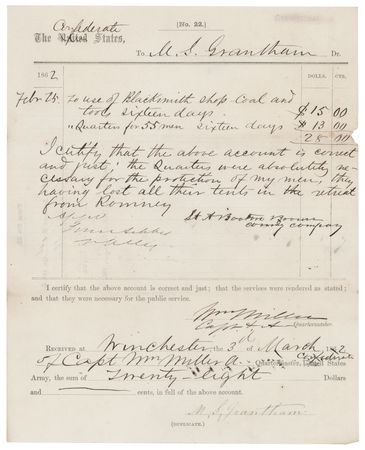 (No. 22.)
Confederate
The United States,
To M. S. Grantham Dr.
1862 DOLLS. CTS.
Febr 25 to use of Blacksmith shop Coal and
tools sixteen days. $15 00
" Quarters for 55 men sixteen days $13 00
28 00
I certify that the above account is correct
and just; the Quarters were absolutely ne-
cessary for the protection of my men, they
having lost all their tents in the retreat
from Romney
county company
I certify that the above account is correct and just; that the services were rendered as stated;
and that they were necessary for the public service.
Wm Miller
Capt & A Quartermaster.
RECEIVED at Winchester the 3d of March, 1862
of Capt Wm Miller A. Quartermaster, Confederate United States
Army, the sum of Twenty-eight Dollars
and cents, in full of the above account.
M. S. Grantham
(DUPLICATE.)